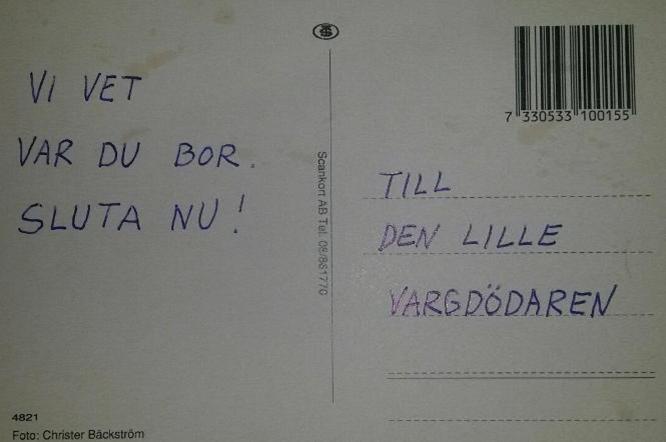 VI VET
VAR DU BOR.
SLUTA NU!
7 330533 100155
TILL
DEN LILLE
VARGDÖDAREN
Scankort AB Tel. 08/861770
4821
Foto: Christer Bäckström